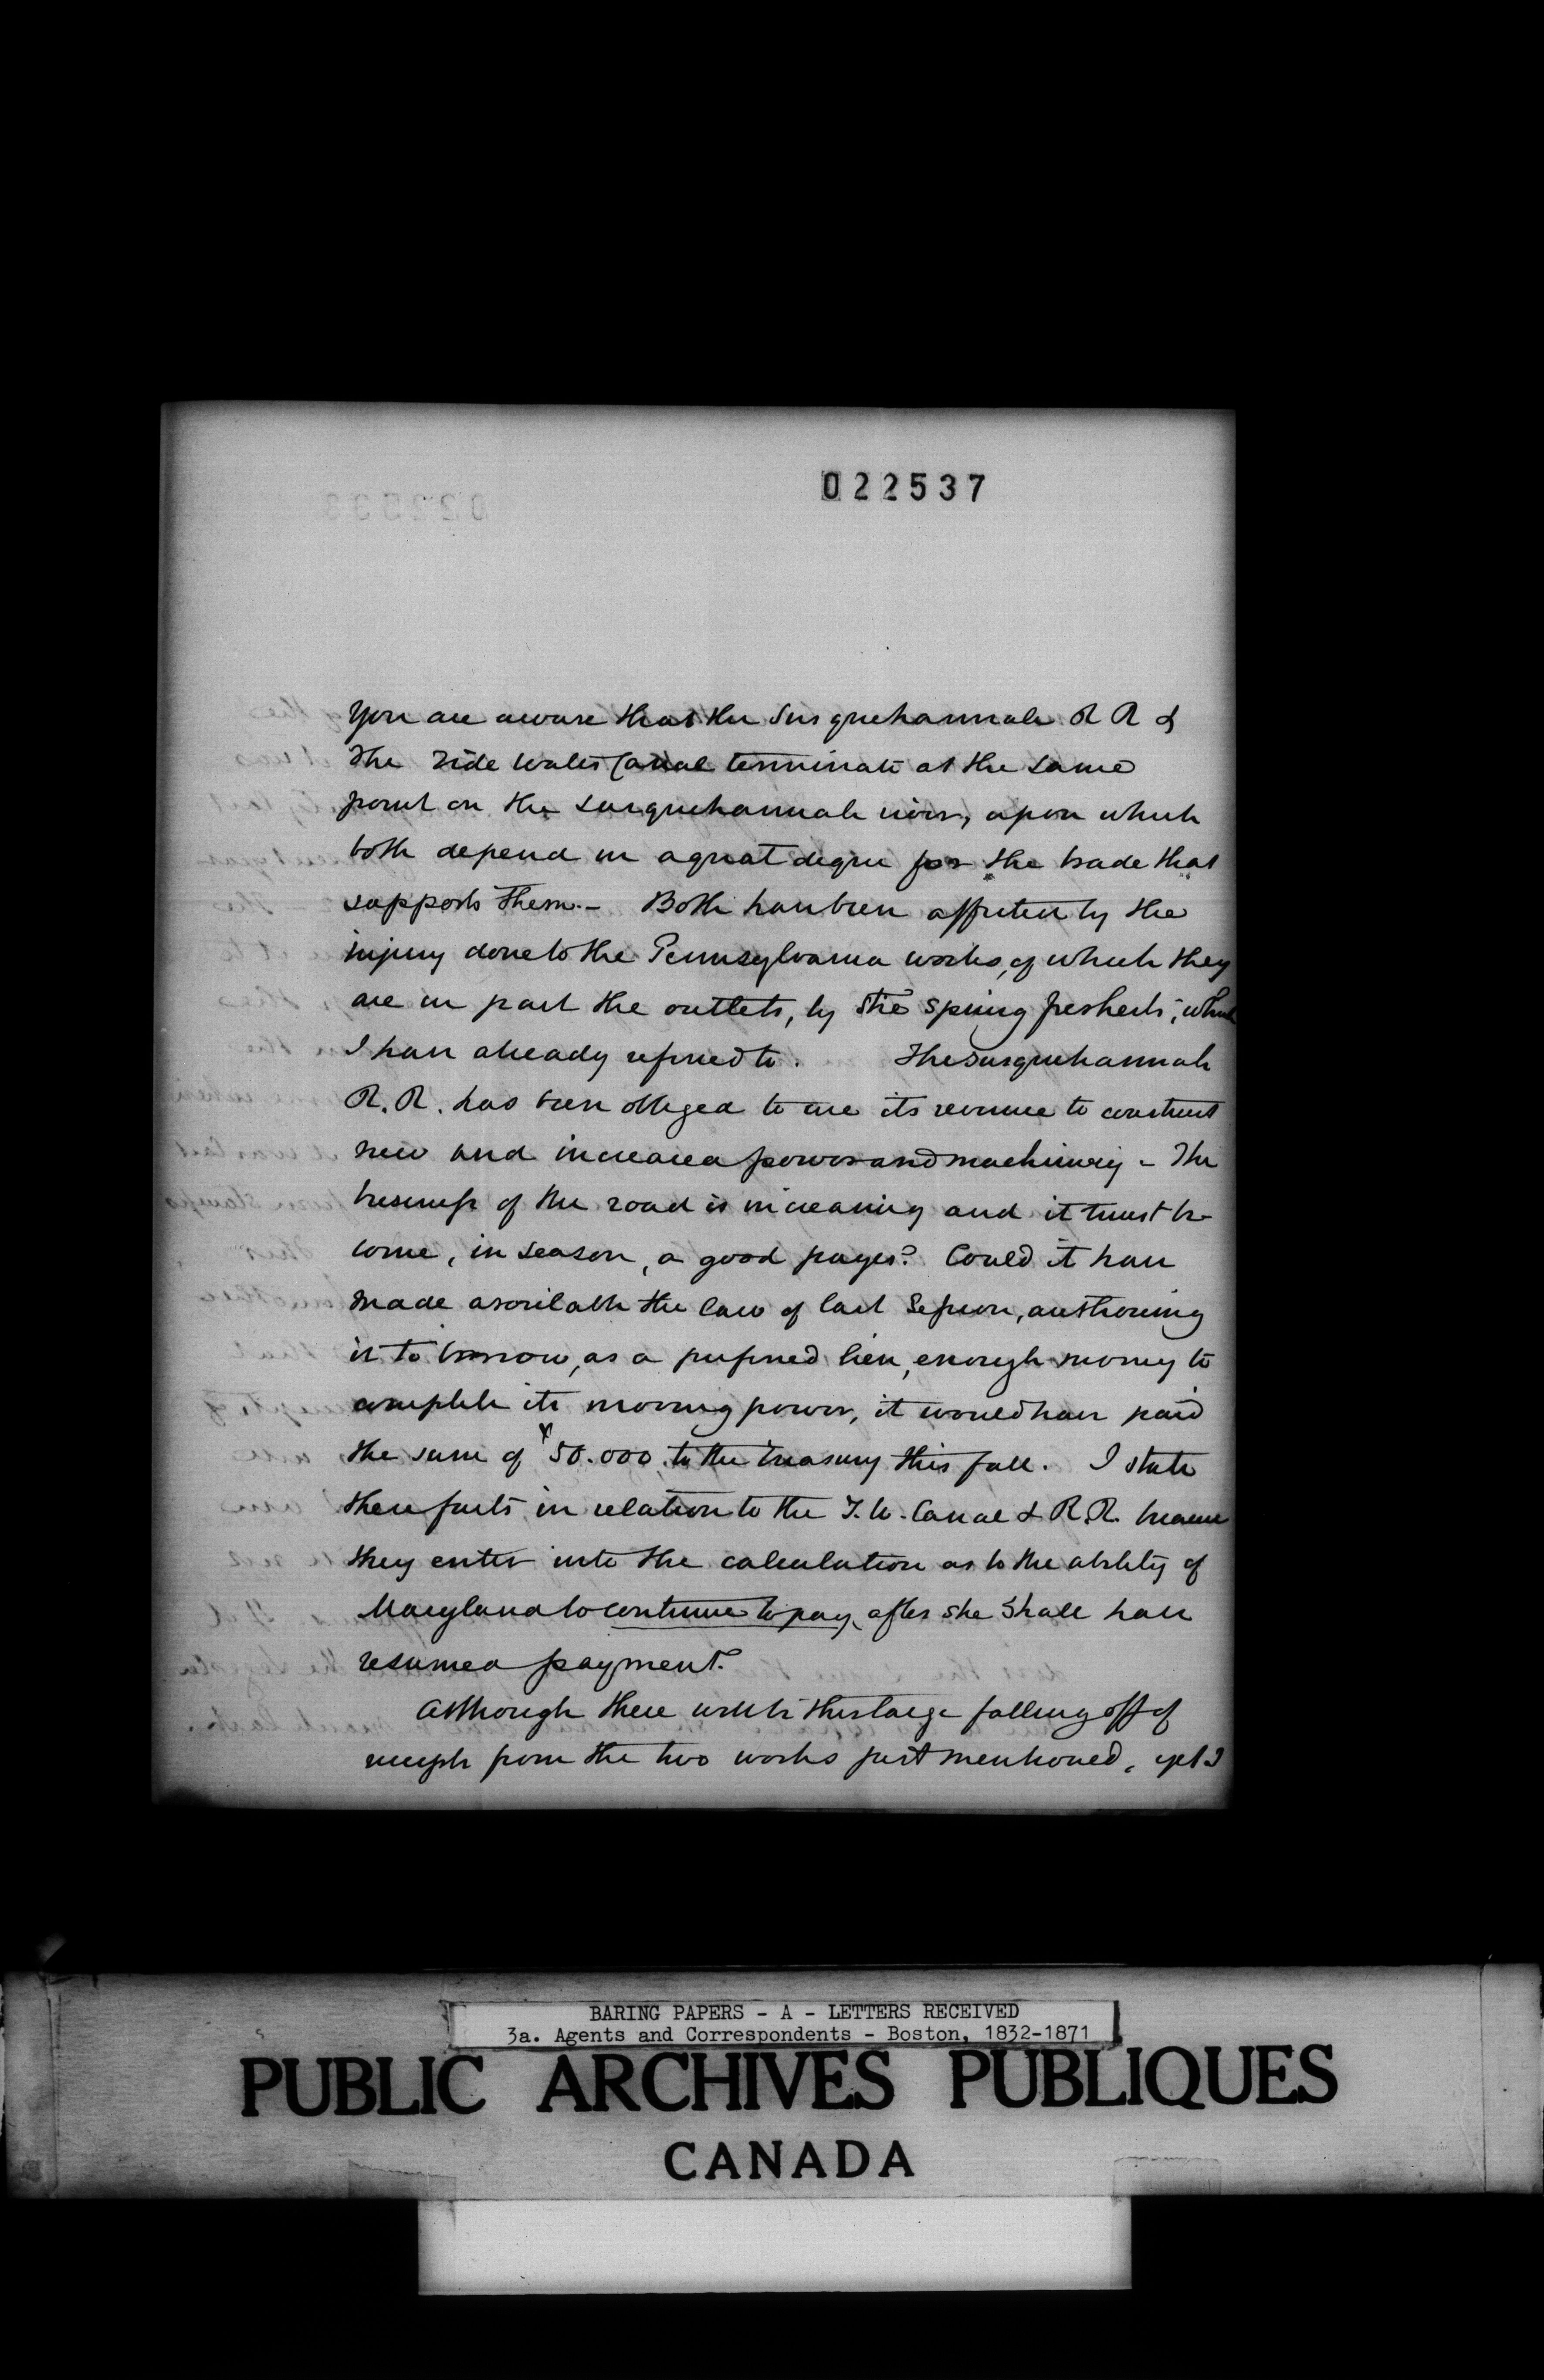 022537
You are aware that the Susquehannah R R &
the Tide Water Canal terminate at the same
point on the Susquehannah river, upon which
both depend in a great degree for the trade that
supports them. - Both have been affected by the
injury done to the Pennsylvania works, of which they
are in part the outlets, by the Spring freshets, which
I have already referred to. The Susquehannah
R. R. has been obliged to use its revenue to construct
new and increased power and machinery - The
business of the road is increasing and it must be-
come, in season, a good payer. Could it have
made available the law of last Session, authorizing
it to borrow, as a preferred lien, enough money to
complete its moving power, it would have paid
the sum of $50.000 to the treasury this fall. I state
these facts in relation to the T. W. Canal & R. R. because
they enter into the calculation as to the ability of
Maryland to continue to pay, after she shall have
resumed payment.
Although there will be this large falling off of
receipts from the two works just mentioned, yet I
BARING PAPERS - A - LETTERS RECEIVED
3a. Agents and Correspondents - Boston, 1832-1871
PUBLIC ARCHIVES PUBLIQUES
CANADA